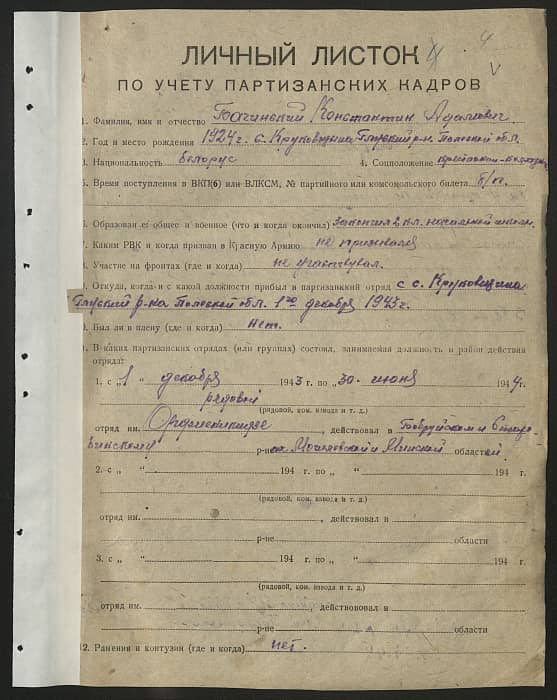 ЛИЧНЫЙ ЛИСТОК 4
ПО УЧЕТУ ПАРТИЗАНСКИХ КАДРОВ
1. Фамилия, имя и отчество Бачинский Константин Адамович.
2. Год и место рождения 1924 г. с. Круковщина Глусский р-н Полеской обл.
3. Национальность белорус 4. Соцположение
5. Время поступления в ВКП(б) или ВЛКСМ, № партийного или комсомольского билета б/п.
6. Образование общее и военное (что и когда окончил) Закончил 2 кл. начальной школы.
7. Каким РВК и когда призван в Красную Армию не призывался
8. Участие на фронтах (где и когда) не участвувал.
9. Откуда, когда и с какой должности прибыл в партизанский отряд с с. Круковщина
Глуский р-на Полеской обл. 1го декабря 1943 г.
0. Был ли в плену (где и когда) нет.
1. В каких партизанских отрядах (или группах) состоял, занимаемая должность и район действия
отряда:
1. с „1“ декабря 1943 г. по „30“ июня 1944 г.
рядовой
(рядовой, ком. взвода и т. д.)
отряд им. Орджоникидзе, действовал в Бобруйском и Старо-
бинскому р-не Могилевской и Минской областей
2. с „ “ 194 г. по „ “ 194 г.
(рядовой, ком. взвода и т. д.)
отряд им. , действовал в
р-не области
3. с „ “ 194 г. по „ “ 194 г.
(рядовой, ком. взвода и т. д.)
отряд им. действововал в
р-не области
12. Ранения и контузии (где и когда) нет.